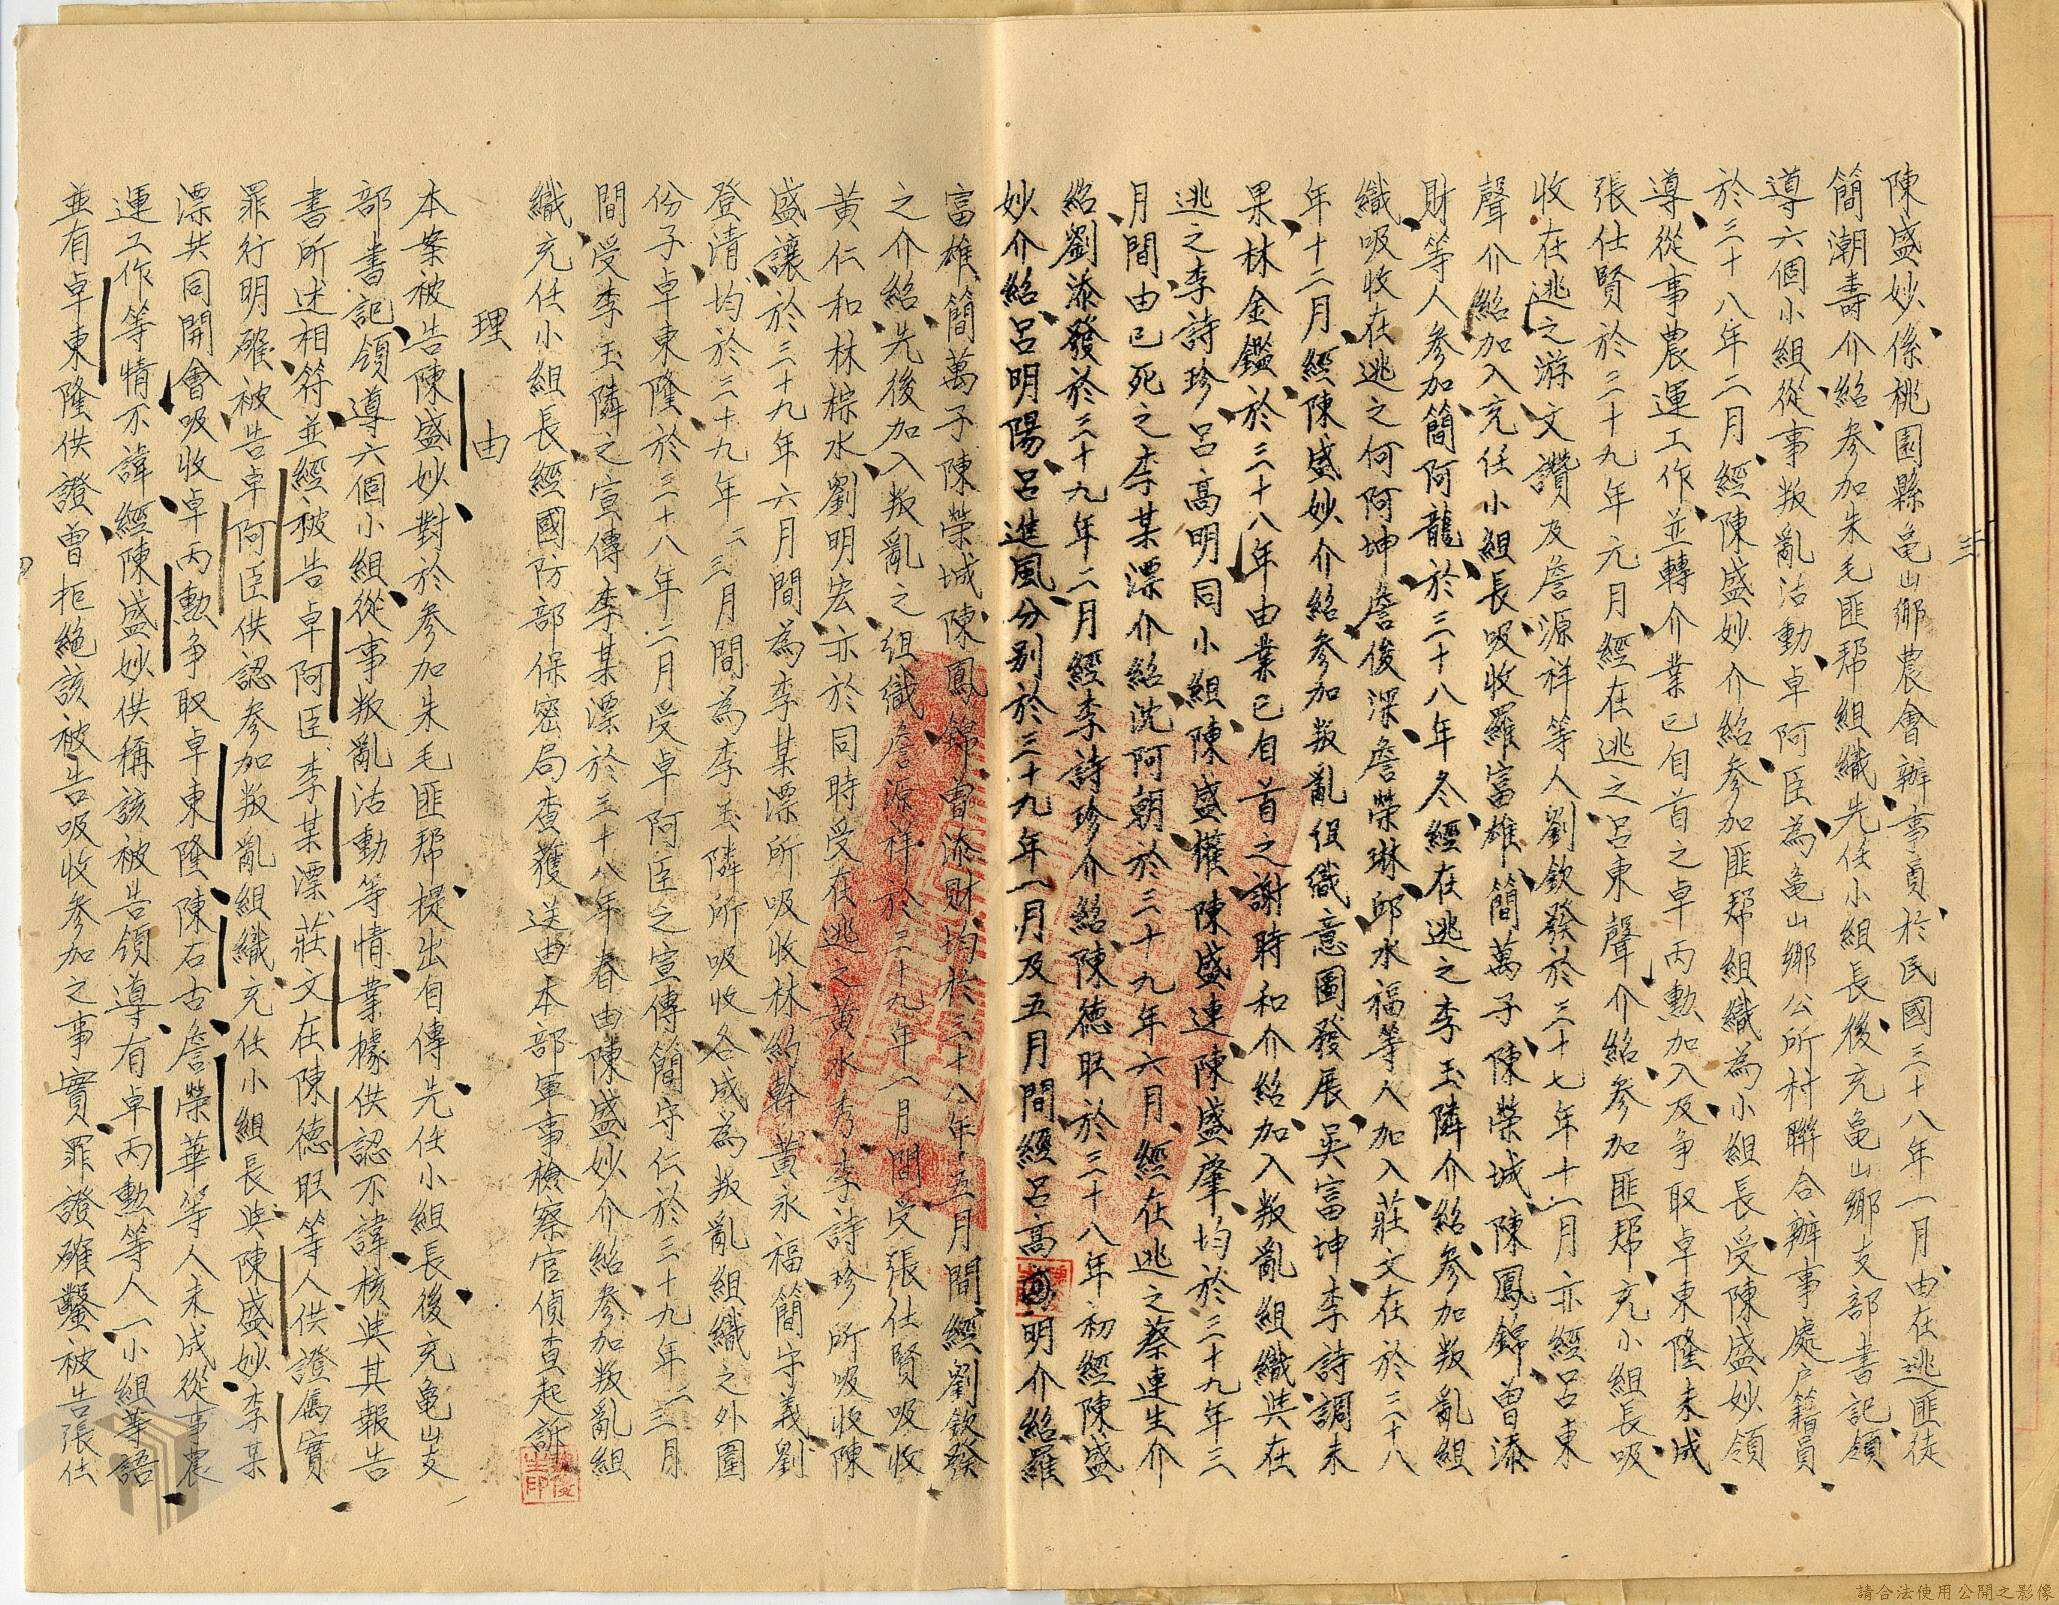 三
陳盛妙係桃園縣龜山鄉農會辦事員於民國三十八年一月由在逃匪徒
簡潮壽介紹參加朱毛匪幫組織先任小組長後充龜山鄉支部書記領
導六個小組從事叛亂活動卓阿臣為龜山鄉公所村聯合辦事處戶籍員
於三十八年二月經陳盛妙介紹參加匪幫組織為小組長受陳盛妙領
導從事農運工作並轉介業已自首之卓丙勲加入及爭取卓東隆未成
張仕賢於三十九年元月經在逃之呂東聲介紹參加匪幫充小組長吸
收在逃之游文讚及詹源祥等人劉欽發於三十七年十一月亦經呂東
聲介紹加入充任小組長吸收羅富雄簡萬子陳榮城陳鳳錦曾添
財等人參加簡阿龍於三十八年冬經在逃之李玉隣介紹參加叛亂組
織吸收在逃之何阿坤詹俊深詹榮琳邱水福等人加入莊文在於三十八
年十二月經陳盛妙介紹參加叛亂組織意圖發展吳富坤李詩調未
果林金鑑於三十八年由業已自首之謝時和介紹加入叛亂組織與在
逃之李詩珍呂高明同小組陳盛權陳盛連陳盛肇均於三十九年三
月間由已死之李某漂介紹沈阿朝於三十九年六月經在逃之蔡連生介
紹劉添發於三十九年二月經李詩珍介紹陳德旺於三十八年初經陳盛
妙介紹呂明陽呂進風分別於三十九年一月及五月間經呂高明介紹羅
富雄簡萬子陳榮城陳鳳錦曾添財均於三十八年五月間經劉欽發
之介紹先後加入叛亂之組織詹源祥於三十九年一月間受張仕賢吸收
黃仁和林棕水劉明宏亦於同時受在逃之黃水秀李詩珍所吸收陳
盛讓於三十九年六月間為李某漂所吸收林約幹黃永福簡守義劉
登清均於三十九年二三月間為李玉隣所吸收各成為叛亂組織之外圍
份子卓東隆於三十八年二月受卓阿臣之宣傳簡守仁於三十九年二三月
間受李玉隣之宣傳李某漂於三十八年春由陳盛妙介紹參加叛亂組
織充任小組長經國防部保密局查獲送由本部軍事檢察官偵查起訴
理由
本案被告陳盛妙對於參加朱毛匪幫提出自傳先任小組長後充龜山支
部書記領導六個小組從事叛亂活動等情業據供認不諱核與其報告
書所述相符並經被告卓阿臣李某漂莊文在陳德旺等人供證屬實
罪行明確被告卓阿臣供認參加叛亂組織充任小組長與陳盛妙李某
漂共同開會吸收卓丙勲爭取卓東隆陳石古詹榮華等人未成從事農
運工作等情不諱經陳盛妙供稱該被告領導有卓丙勲等人一小組等語
並有卓東隆供證曾拒絕該被告吸收參加之事實罪證確鑿被告張仕
請合法使用公開之影像